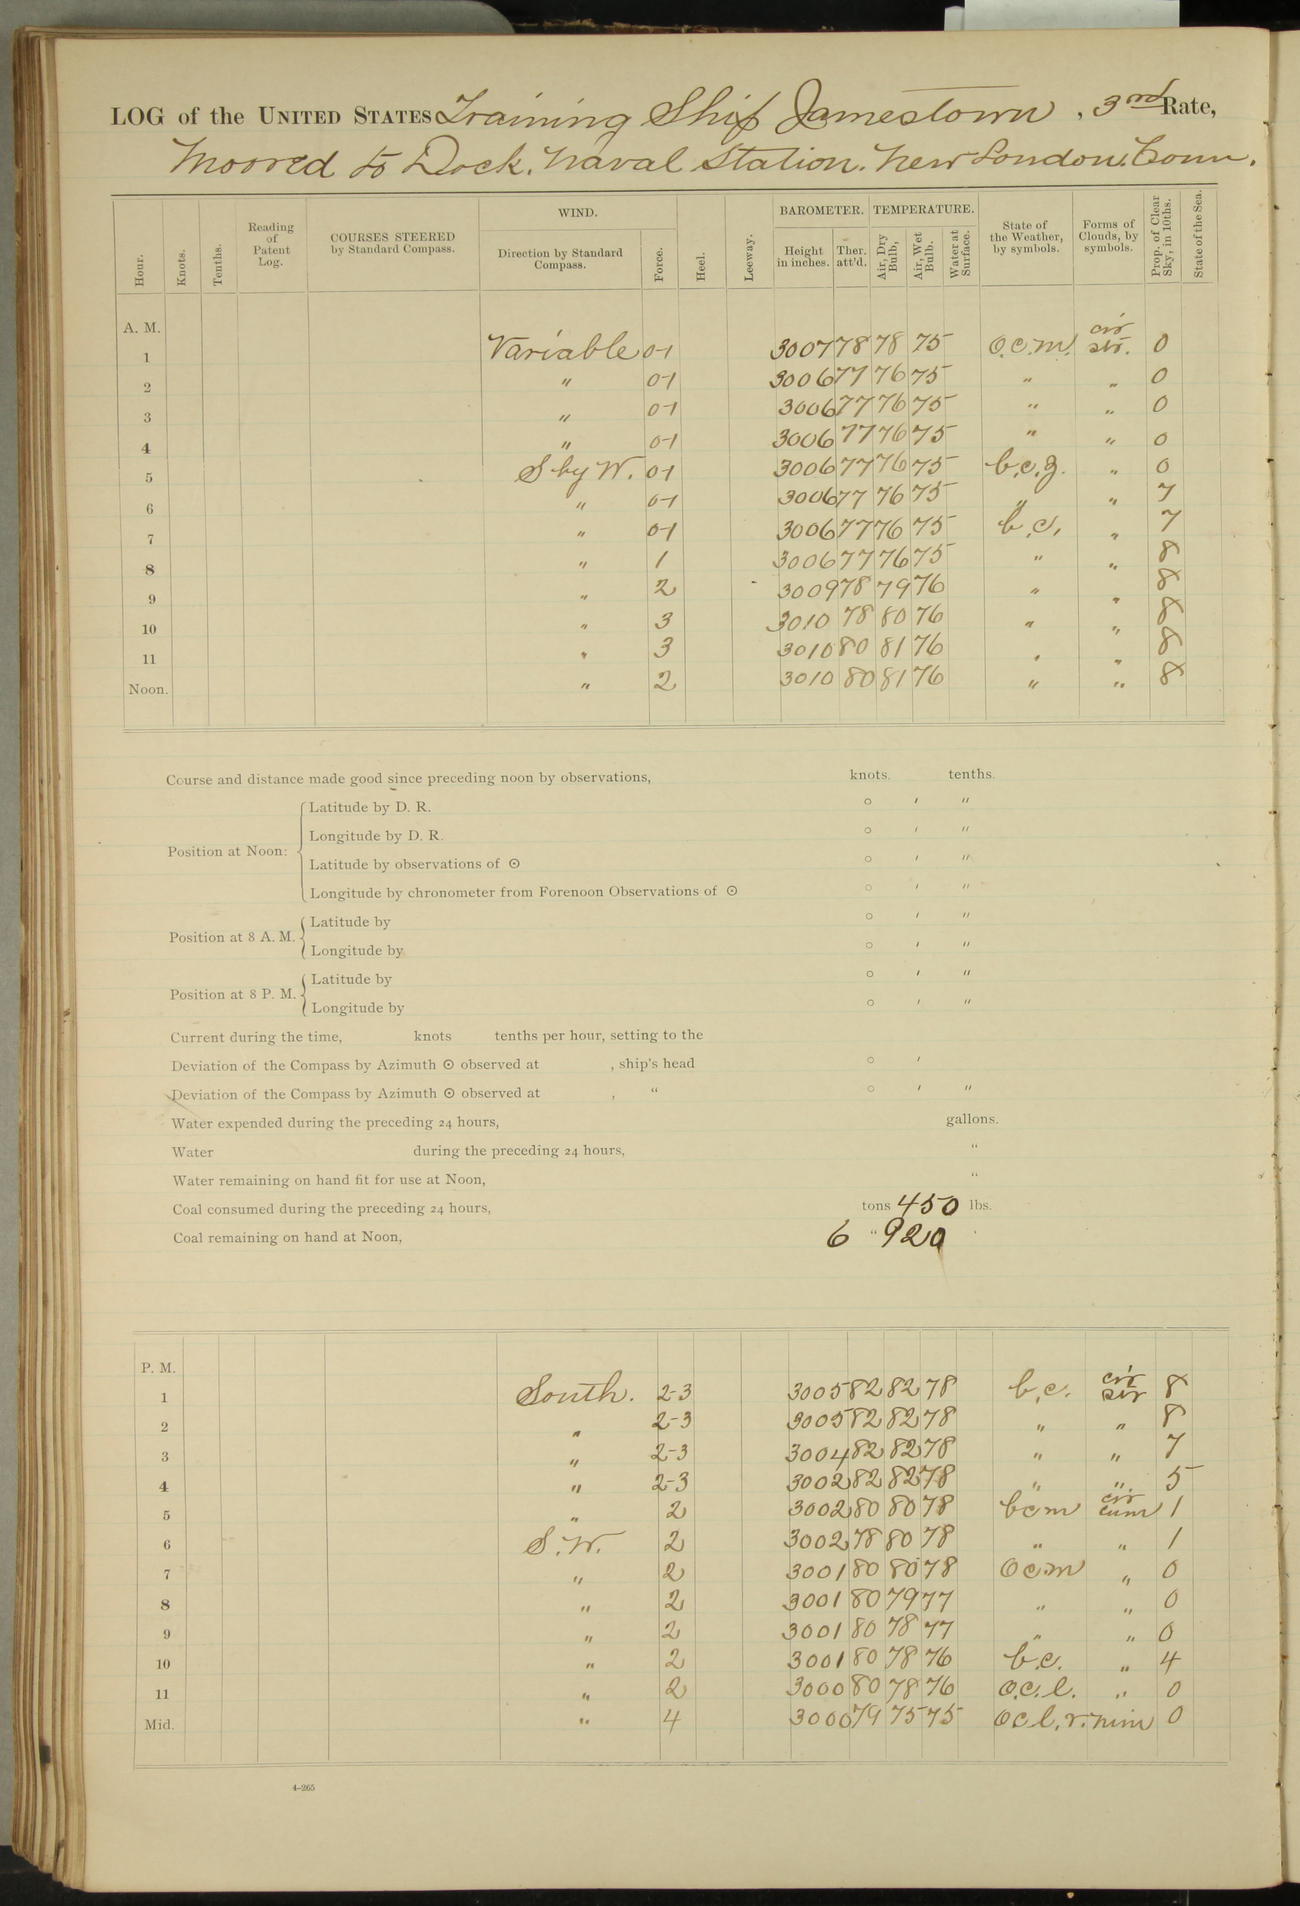 LOG of the UNITED STATES Training Ship Jamestown, 3rd Rate,
Moored to Dock. Naval Station. New London. Conn.
Hour. Knots. Tenths. Reading of Patent Log. COURSES STEERED by Standard Compass. WIND. Direction by Standard Compass. Force. Heel. Leeway. BAROMETER. Height in inches. Ther. att'd. TEMPERATURE. Air, Dry Bulb, Air, Wet Bulb. Water at Surface. State of the Weather, by symbols. Forms of Clouds, by symbols. Prop. of Clear Sky, in 10ths. State of the Sea.
A. M.
1 Variable 0-1 3007 78 78 75 o.c.m. cir str. 0
2 " 0-1 3006 77 76 75 " " 0
3 " 0-1 3006 77 76 75 " " 0
4 " 0-1 3006 77 76 75 " " 0
5 S by W. 0-1 3006 77 76 75 b.c.z. " 0
6 " 0-1 3006 77 76 75 " " 7
7 " 0-1 3006 77 76 75 b.c. " 7
8 " 1 3006 77 76 75 " " 8
9 " 2 3009 78 79 76 " " 8
10 " 3 3010 78 80 76 " " 8
11 " 3 3010 80 81 76 " " 8
Noon. " 2 3010 80 81 76 " " 8
Course and distance made good since preceding noon by observations, knots. tenths.
Position at Noon:
Latitude by D. R. ° ′ ″
Longitude by D. R. ° ′ ″
Latitude by observations of ⊙ ° ′ ″
Longitude by chronometer from Forenoon Observations of ⊙ ° ′ ″
Position at 8 A. M.
Latitude by ° ′ ″
Longitude by ° ′ ″
Position at 8 P. M.
Latitude by ° ′ ″
Longitude by ° ′ ″
Current during the time, knots tenths per hour, setting to the
Deviation of the Compass by Azimuth ⊙ observed at , ship's head ° ′
Deviation of the Compass by Azimuth ⊙ observed at , " ° ′ ″
Water expended during the preceding 24 hours, gallons.
Water during the preceding 24 hours, "
Water remaining on hand fit for use at Noon, "
Coal consumed during the preceding 24 hours, tons 450 lbs.
Coal remaining on hand at Noon, 6 " 920
P. M.
1 South. 2-3 3005 82 82 78 b.c. cir str 8
2 " 2-3 3005 82 82 78 " " 8
3 " 2-3 3004 82 82 78 " " 7
4 " 2-3 3002 82 82 78 " " 5
5 " 2 3002 80 80 78 bcm cir cum 1
6 S.W. 2 3002 78 80 78 " " 1
7 " 2 3001 80 80 78 ocm " 0
8 " 2 3001 80 79 77 " " 0
9 " 2 3001 80 78 77 " " 0
10 " 2 3001 80 78 76 b.c. " 4
11 " 2 3000 80 78 76 o.c.l. " 0
Mid. " 4 3000 79 75 75 ocl.r. nim 0
4-265